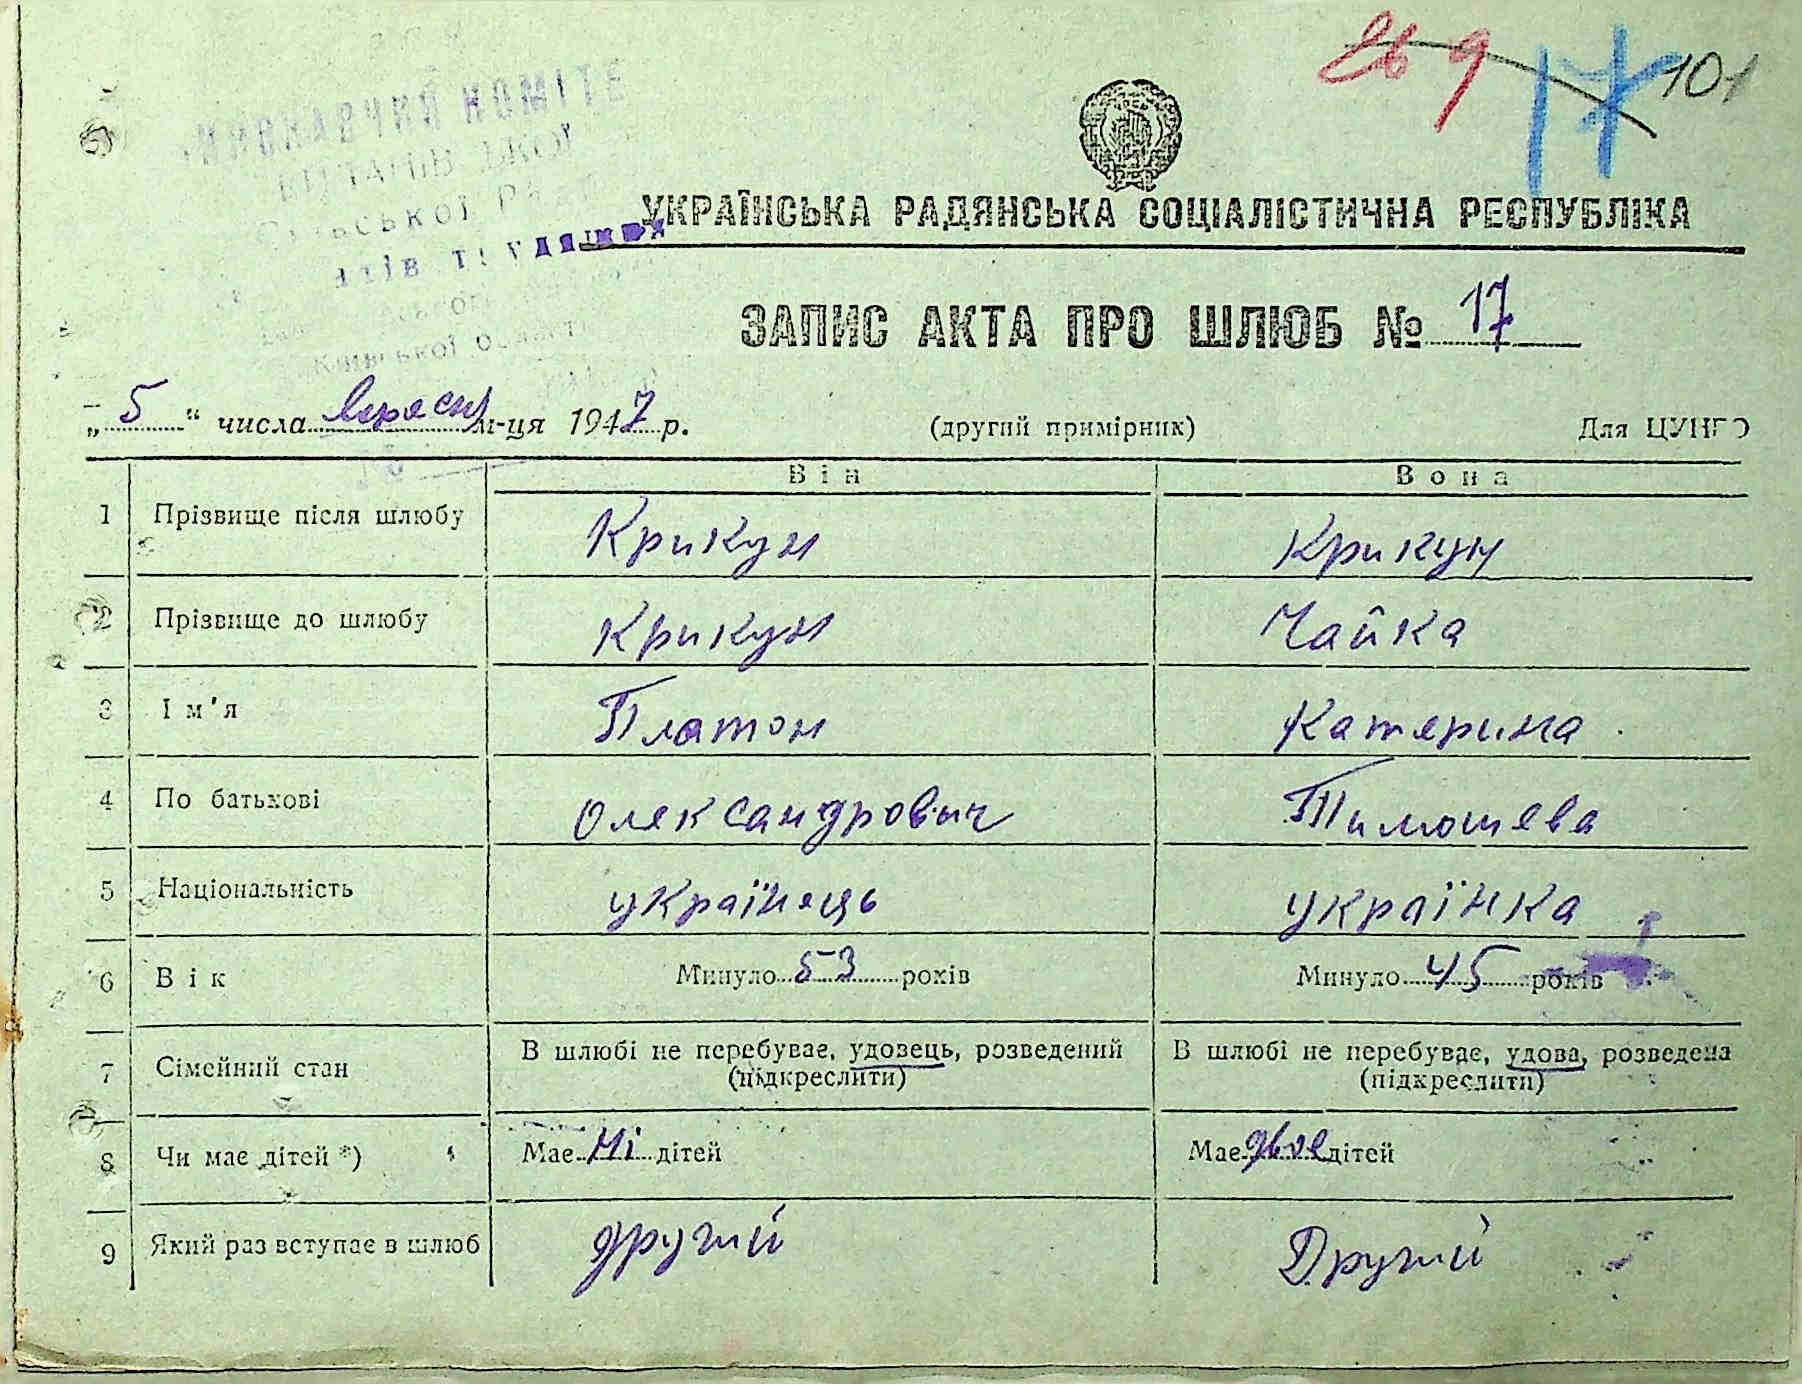 269 17 101
ВИКОНАВЧИЙ КОМІТЕ
СІЛЬСЬКОЇ
трудящих
Київської області
УКРАЇНСЬКА РАДЯНСЬКА СОЦІАЛІСТИЧНА РЕСПУБЛІКА
ЗАПИС АКТА ПРО ШЛЮБ № 17
„ 5 “ числа Вересня м-ця 1947 р. (другий примірник) Для ЦУНГО
Він Вона
1 Прізвище після шлюбу Крикун Крикун
2 Прізвище до шлюбу Крикун Чайка
3 Ім'я Платон Катерина
4 По батькові Олександрович Тимошева
5 Національність українець українка
6 Вік Минуло 53 років Минуло 45 років
7 Сімейний стан В шлюбі не перебуває, удовець, розведений В шлюбі не перебуває, удова, розведена
(підкреслити) (підкреслити)
8 Чи має дітей *) Має Ні дітей Має двоє дітей
9 Який раз вступає в шлюб другий Другий